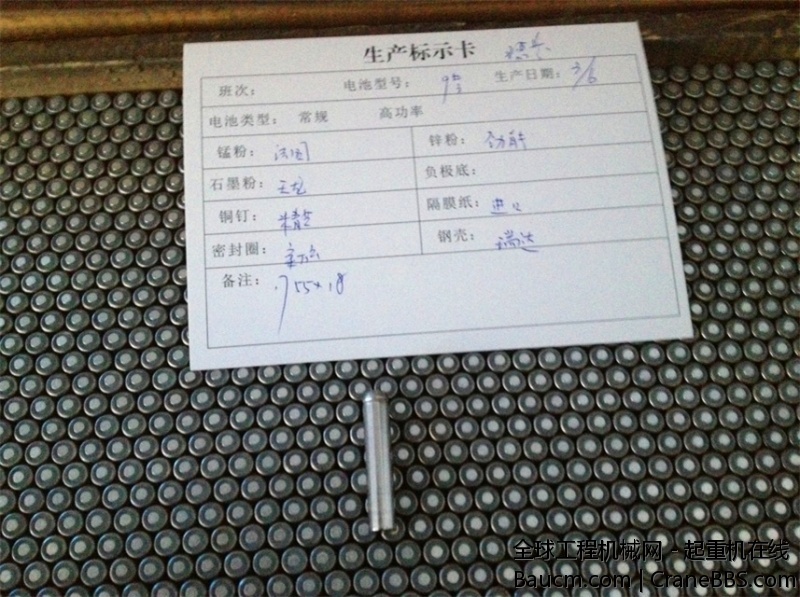 生产标示卡
班次： 电池型号： 9号 生产日期： 3/6
电池类型： 常规 高功率
锰粉： 锌粉：
石墨粉： 天龙 负极底：
铜钉： 精密 隔膜纸： 进口
密封圈： 钢壳： 瑞达
备注：
全球工程机械网 - 起重机在线
Baucm.com | CraneBBS.com